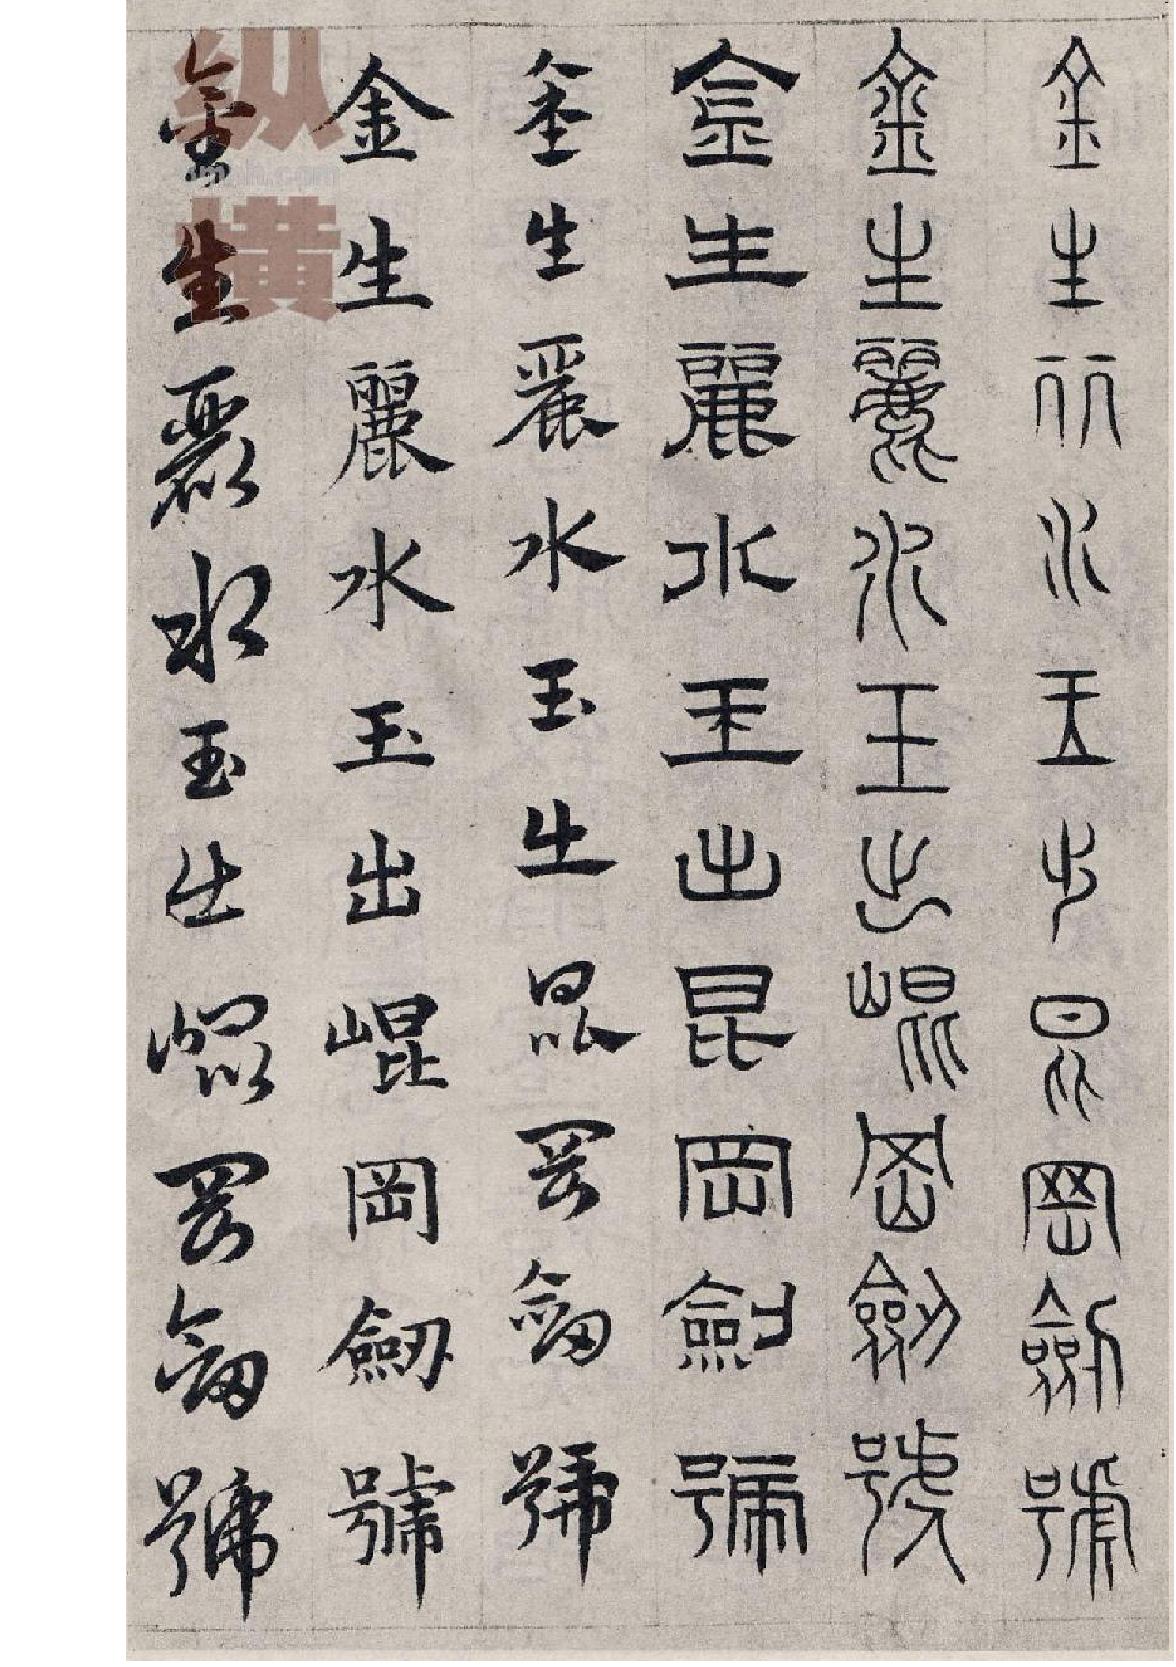 金生麗水玉出昆岡劍號
金生麗水玉出崐岡劒號
金生麗水玉出昆岡劍號
金生麗水玉出昆岡劒號
金生麗水玉出崐岡劒號
金生麗水玉出崐岡劒號
纵横